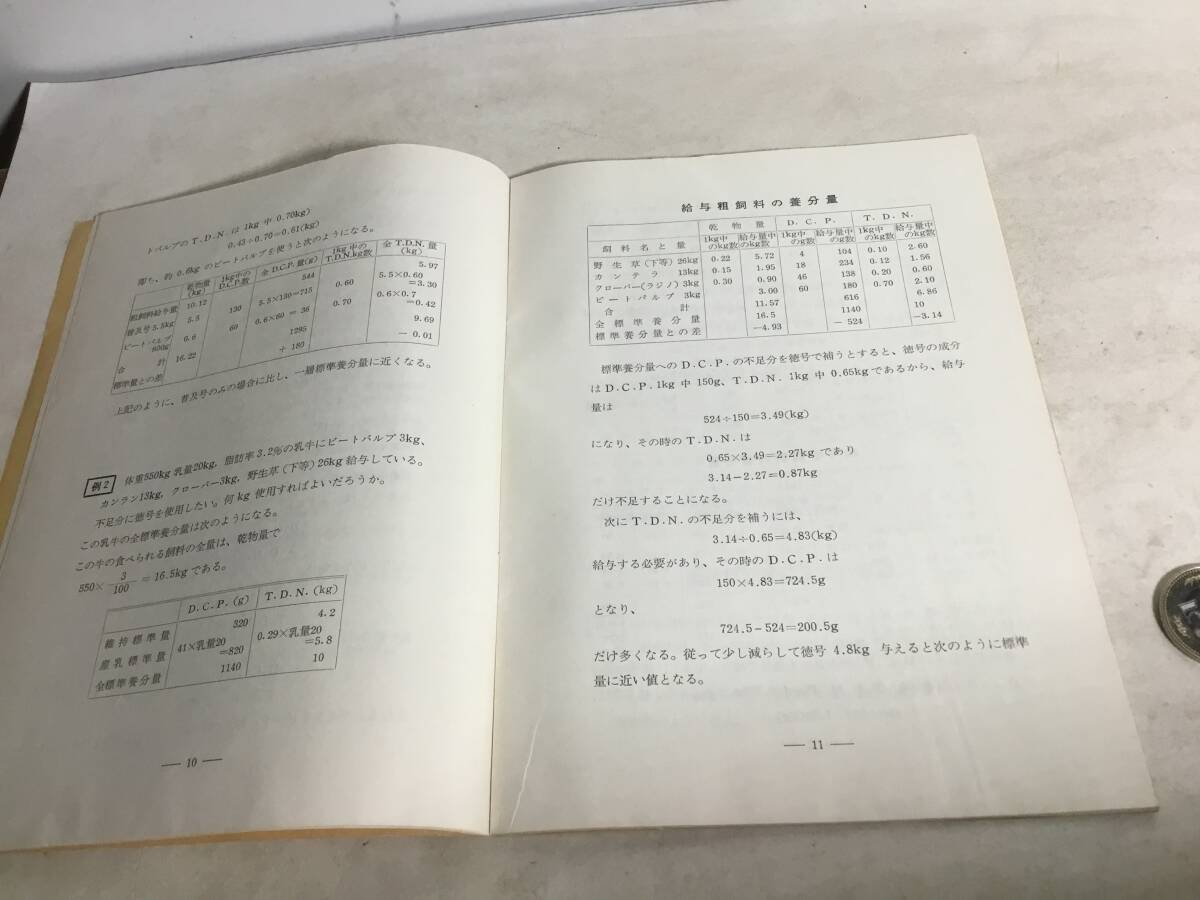 トパルプのT.D.N.は1kg 中 0.70kg)
0.43÷0.70=0.61(kg)
即ち、約 0.6kg のビートパルプを使うと次のようになる。
乾物量(kg) 1kg中のD.C.P.数 全D.C.P.量(g) 1kg中のT.D.N.kg数 全T.D.N.量(kg)
粗飼料給与量 10.12 544 5.97
普及号5.5kg 5.5 130 5.5×130=715 0.60 5.5×0.60=3.30
ビートパルプ600g 0.6 60 0.6×60 = 36 0.70 0.6×0.7=0.42
合 計 16.22 1295 9.69
標準量との差 + 180 − 0.01
上記のように、普及号のみの場合に比し、一層標準養分量に近くなる。
例2 体重550kg 乳量20kg, 脂肪率3.2%の乳牛にビートパルプ3kg、
カンラン13kg, クローバー3kg, 野生草(下等)26kg 給与している。
不足分に徳号を使用したい。何kg 使用すればよいだろうか。
この乳牛の全標準養分量は次のようになる。
この牛の食べられる飼料の全量は、乾物量で
550× 3/100 = 16.5kgである。
D.C.P.(g) T.D.N.(kg)
維持標準量 320 4.2
産乳標準量 41×乳量20=820 0.29×乳量20=5.8
全標準養分量 1140 10
— 10 —
給与粗飼料の養分量
乾物量 D.C.P. T.D.N.
飼料名と量 1kg中のkg数 給与量中のkg数 1kg中のg数 給与量中のg数 1kg中のkg数 給与量中のkg数
野生草(下等)26kg 0.22 5.72 4 104 0.10 2.60
カンテラ 13kg 0.15 1.95 18 234 0.12 1.56
クローバー(ラジノ)3kg 0.30 0.90 46 138 0.20 0.60
ビートパルプ 3kg 3.00 60 180 0.70 2.10
合計 11.57 616 6.86
全標準養分量 16.5 1140 10
標準養分量との差 −4.93 − 524 −3.14
標準養分量へのD.C.P.の不足分を徳号で補うとすると、徳号の成分
はD.C.P.1kg 中 150g、T.D.N.1kg 中 0.65kgであるから、給与
量は
524÷150=3.49(kg)
になり、その時のT.D.N.は
0.65×3.49=2.27kg であり
3.14−2.27=0.87kg
だけ不足することになる。
次にT.D.N.の不足分を補うには、
3.14÷0.65=4.83(kg)
給与する必要があり、その時のD.C.P.は
150×4.83=724.5g
となり、
724.5−524=200.5g
だけ多くなる。従って少し減らして徳号 4.8kg 与えると次のように標準
量に近い値となる。
— 11 —